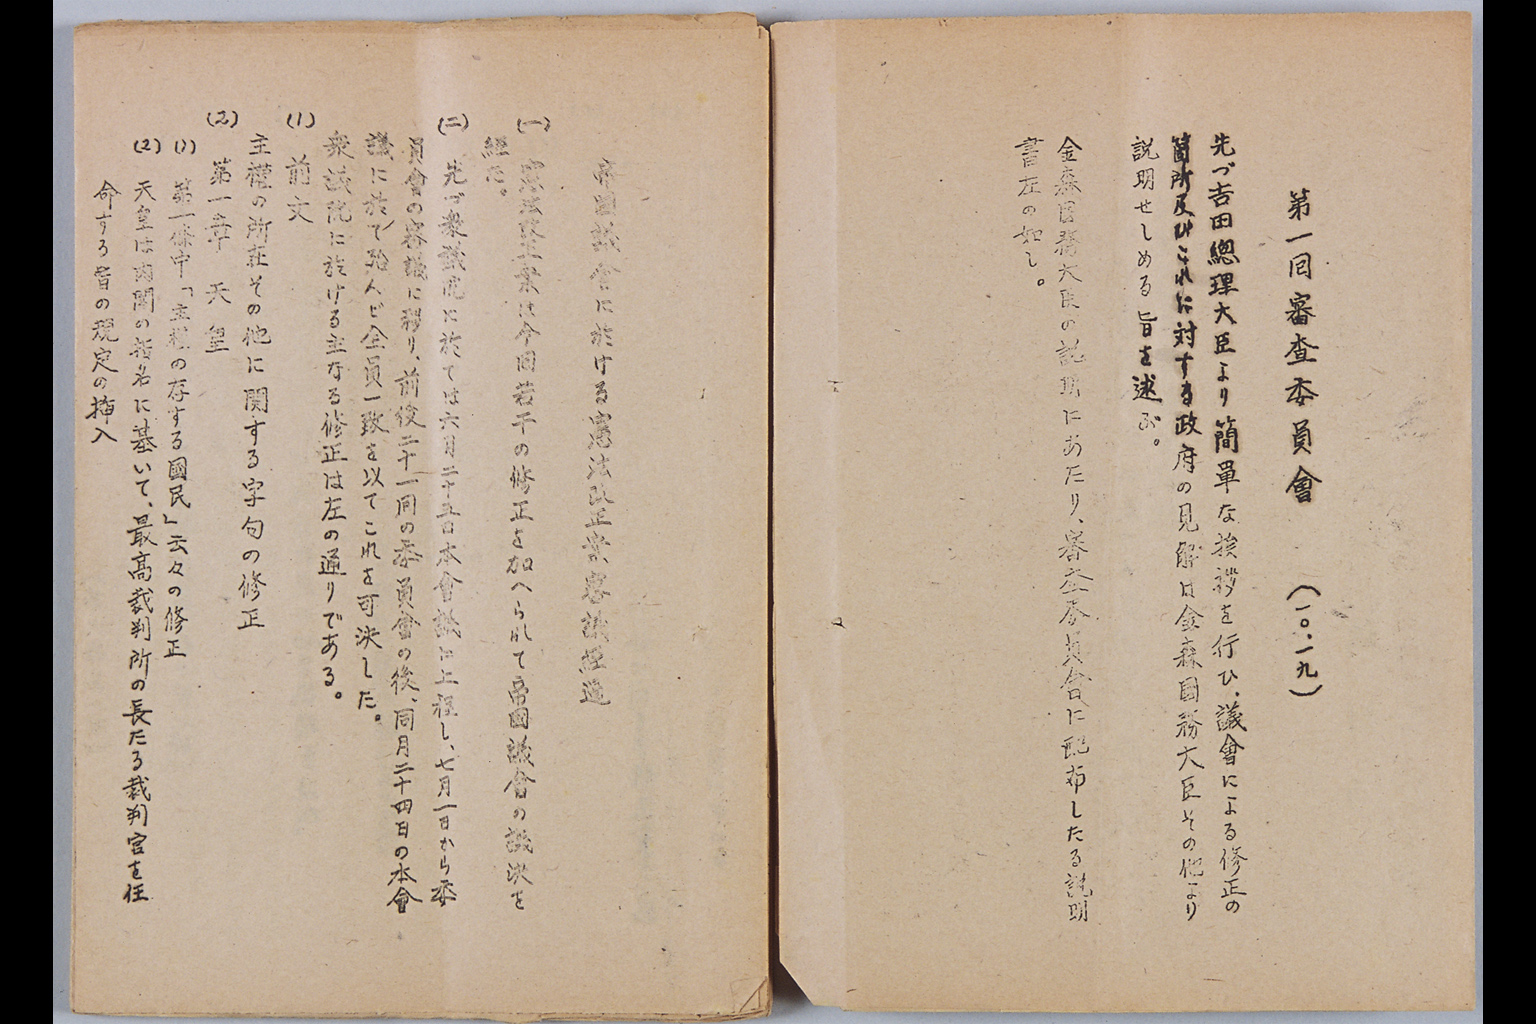 第一回審査委員會 (一〇.一九)
先づ吉田總理大臣より簡單な挨拶を行ひ、議會による修正の
箇所及びこれに対する政府の見解は金森國務大臣その他より
説明せしめる旨を述ぶ。
金森國務大臣の説明にあたり、審査委員会に配布したる説明
書左の如し。
帝國議會に於ける憲法改正案審議經過
(一) 憲法改正案は今回若干の修正を加へられて帝國議會の議決を
經た。
(二) 先づ衆議院に於ては六月二十五日本會議に上程し、七月一日から委
員會の審議に移り、前後二十一回の委員會の後、同月二十四日の本會
議に於て殆んど全員一致を以てこれを可決した。
衆議院に於ける主なる修正は左の通りである。
(1) 前文
主權の所在その他に関する字句の修正
(2) 第一章 天皇
(1) 第一條中「主權の存する國民」云々の修正
(2) 天皇は内閣の指名に基いて、最高裁判所の長たる裁判官を任
命する旨の規定の挿入